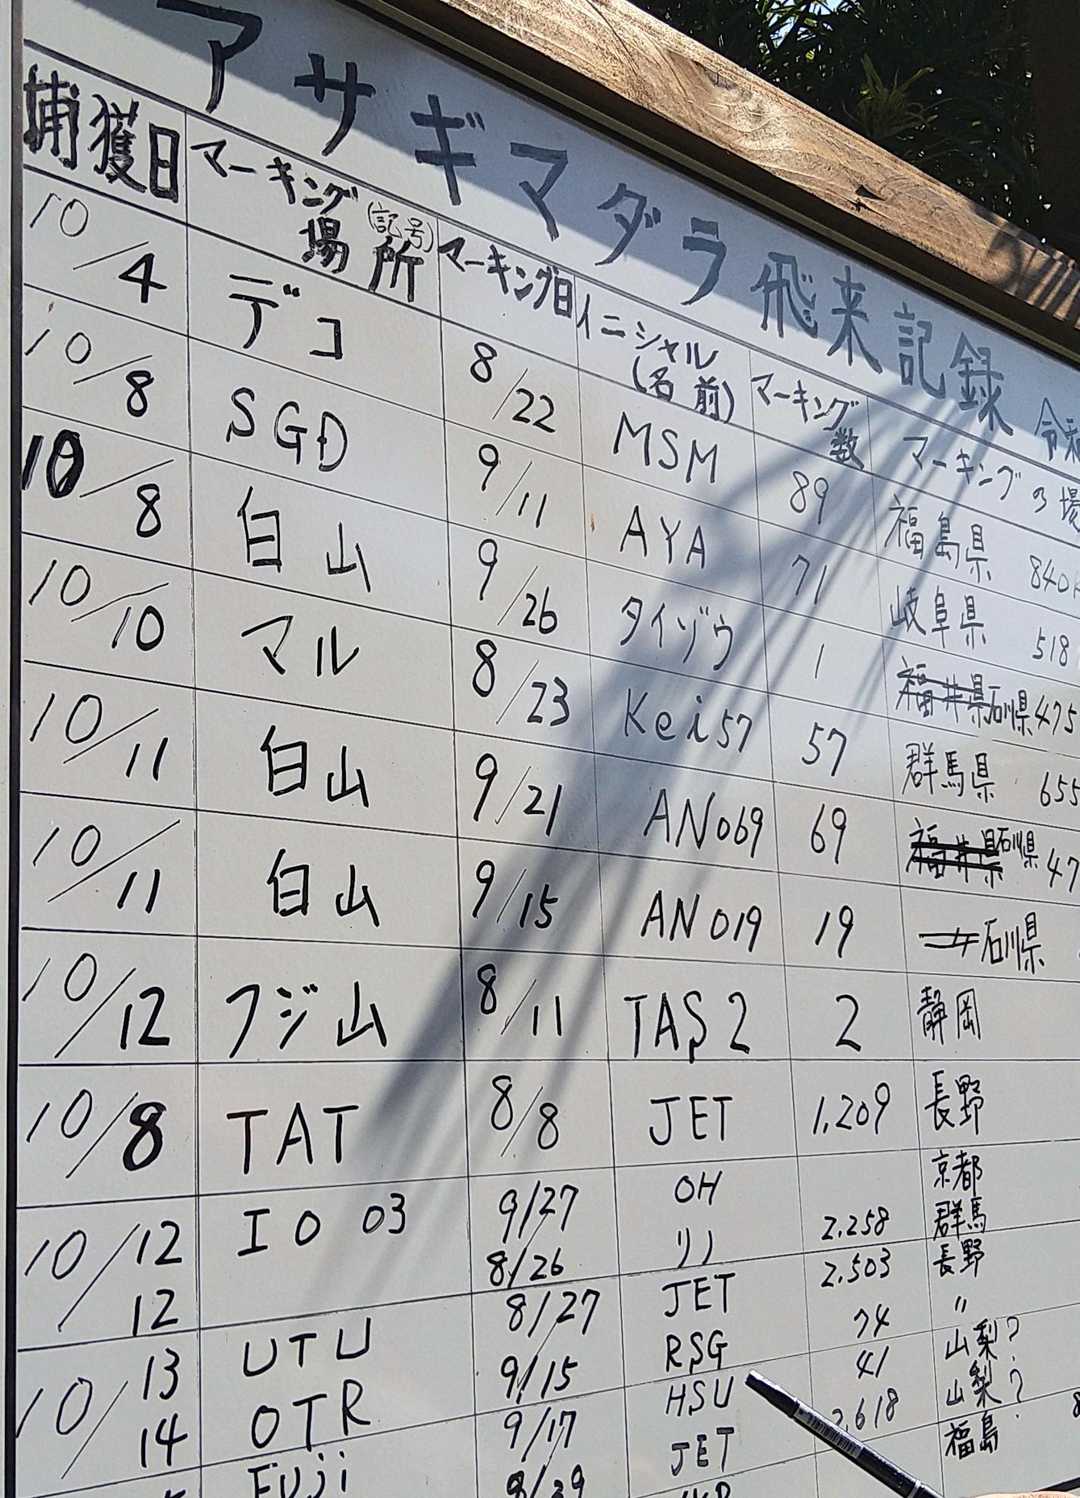 アサギマダラ飛来記録 令和
捕獲日 マーキング場所(記号) マーキング日 イニシャル(名前) マーキング数 マーキングの場
10/4 デコ 8/22 MSM 89 福島県 840
10/8 SGD 9/11 AYA 71 岐阜県 518
10/8 白山 9/26 タイゾウ 1 福井県石川県 475
10/10 マル 8/23 Kei57 57 群馬県 655
10/11 白山 9/21 AN069 69 福井県石川県 47
10/11 白山 9/15 AN019 19 石川県
10/12 フジ山 8/11 TAS2 2 静岡
10/8 TAT 8/8 JET 1,209 長野
10/12 IO 03 9/27 OH 京都
12 8/26 リノ 2.258 群馬
8/27 JET 2.503 長野
10/13 UTU 9/15 RSG 74 〃
14 OTR 9/17 HSU 41 山梨?
Fuji 8/29 JET 618 山梨?
福島